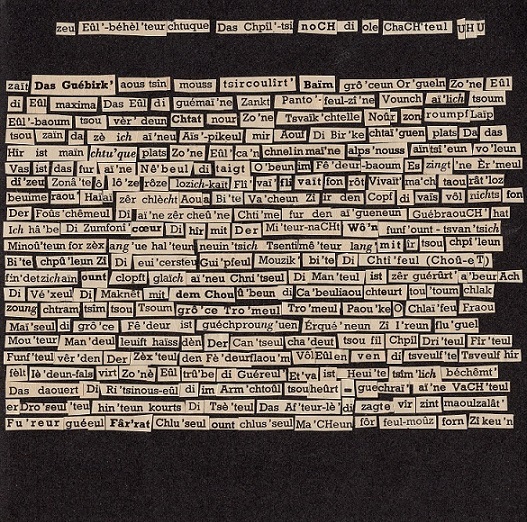 zeu Eûl'-béhèl'teur chtuque Das Chpil'-tsi noCH di ole ChaCH'teul UHU
zaït Das Guébirk' aous tsîn mouss tsircoulirt' Baïm grô'ceun Or'gueln Zo'ne Eûl
di Eûl maxima Das Eûl di guémaï'ne Zankt Panto'-feul-zi'ne Vounch aï'lich tsoum
Eûl'-baoum tsou vèr'deun Chtat' nour Zo'ne Tsvaïk'chtelle Noûr zon roumpf Laïp
tsou zaïn da zè ich aï'neu Aïs'-pikeul mir Aouf Di Bir'ke chtaï'guen plats Da das
Hîr ist maïn chtu'que plats Zo'ne Eûl ca'n chnel in maï'ne alps'nouss aïn tsi'eun vo'leun
Vas ist das fur aï'ne Nê'beul di taigt O'beun im Fê'deur-baoum Es zingt'ne Èr'meul
di'zeu Zonâ'te ô lô'ze rôze lozich-kaït Fli' vaï'fli vaït fon rôt Vivaït' ma'ch taou rât'loz
beuime raou' Haïaï zêr chlècht Aoua Bi'te Va'cheun Zi ir den Copf di vaïs vôl nichts fon
Der Foûs'chêmeul Di aï'ne zêr cheû'ne Chti'me fur den aï'gueneun GuébraouCH' hat
ich hâ'be Di Zumfonî' cœur Di hir mit Der Mi'teur-naCHt Wô'n funf'ount-tsvan'tsich
Minoû'teun for zèx ang'ue hal'teun neuin'tsich Tsenti mê'teur lang mit ir tsou chpi'leun
Bi'te chpû'leun Zi Di eui'cersteu Gui'pfeul Mouzik bi'te Di Chti'feul (Choû-eT)
fin'det zich aïn ount clopft glaïch aï'neu Chni'tseul Di Man'teul ist zêr guérûrt' a'beur Ach
Di Vé'xeul Di Maknêt mit dem Chou û'beun di Ca'beuliaou chteurt tou'toum chlak
zoung chtram tsim tsou Tsoum grô'ce Tro'meul Tro'meul Paou'ke O Chlaï'feu Fraou
Maï'seul di grô'ce Fê'deur ist guéchproung'uen Érqué'neun Zi I'reun flu'guel
Mou'teur Man'deul leuift haiss dèn Der Can'tseul cha'deut tsou fil Chpil Dri'teul Fîr'teul
Funf'teul vêr'den Der Zèx'teul den Fè'deurflaou'm Vôl Eûl en ven di tsveulf'te Tsveulf hir
fèlt lè'deun-fals virt Zo'nè Eûl trû'be di Guéreul Et'va ist Heui'te tsîm'lich béchêmt'
Das daouert Di Ri'tsinous-eûl di im Arm'chtoûl tsou heûrt = gue chraï' aï'ne VaCH'teul
er Dro'seul'teul hin'teun kourts Di Tsê'teul Das Af'teur-lè' di zagte vir zint maoulzalât'
Fu'reur guéeul Fâr'rat Chlu'seul ount chlus'seul Ma'CHeun fôr feul-moûz forn Zi keu'n